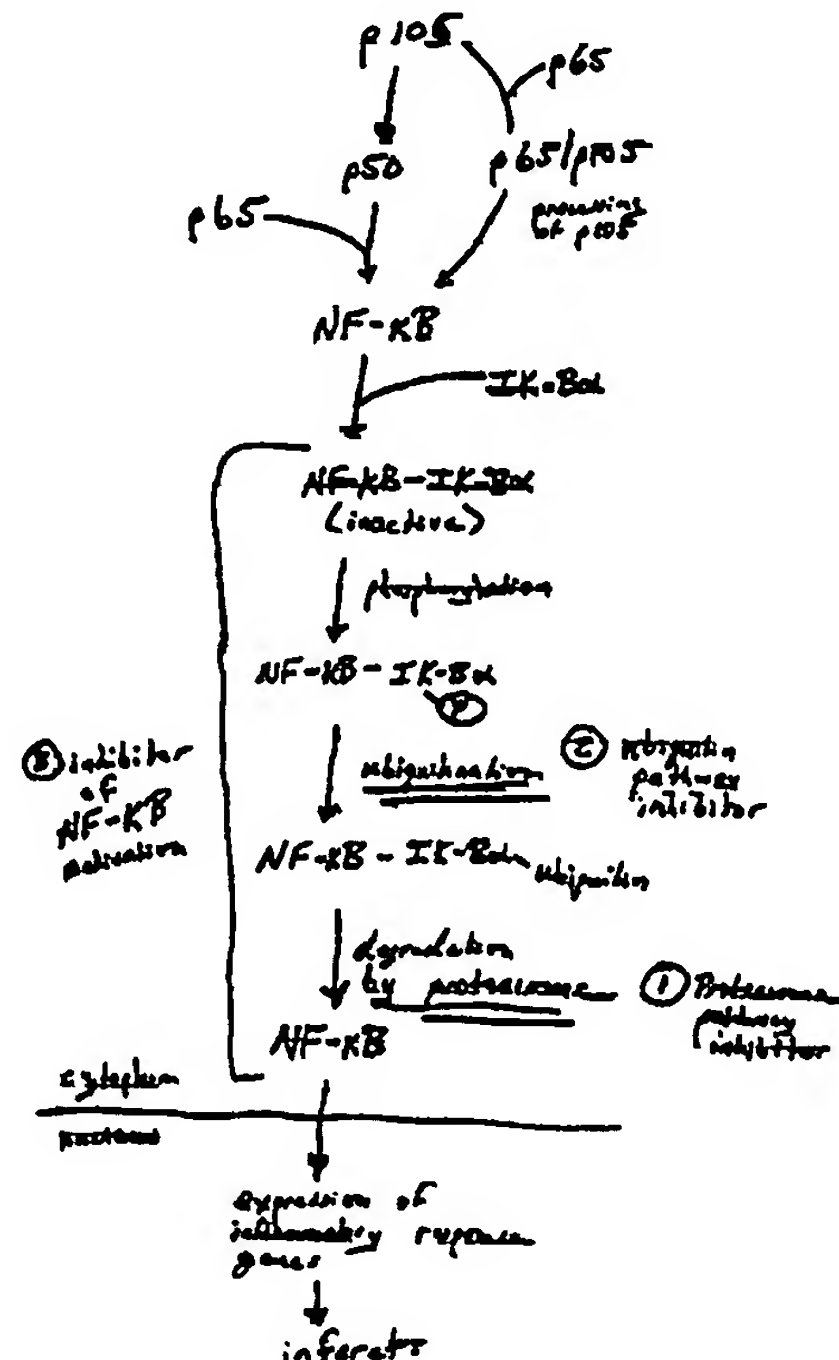 p105
p65
p50
p65/p105
processing
of p105
p65
NF-KB
IK-Bα
NF-KB-IK-Bα
(inactive)
phosphorylation
NF-KB-IK-Bα
P
ubiquitination
② ubiquitin
pathway
inhibitor
③ inhibitor
of
NF-KB
activation
NF-KB-IK-Bα-ubiquitin
degradation
by proteasome
① Proteasome
pathway
inhibitor
NF-KB
cytoplasm
nucleus
expression of
inflammatory response
genes